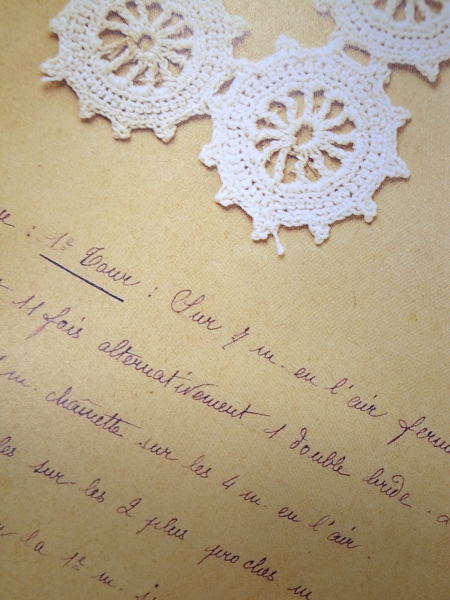 : 1e Tour : Sur 7 m. en l'air
11 fois alternativement 1 double bride
m. chaînette sur les 4 m. en l'air.
les sur les 2 plus proches m
la 1e m.